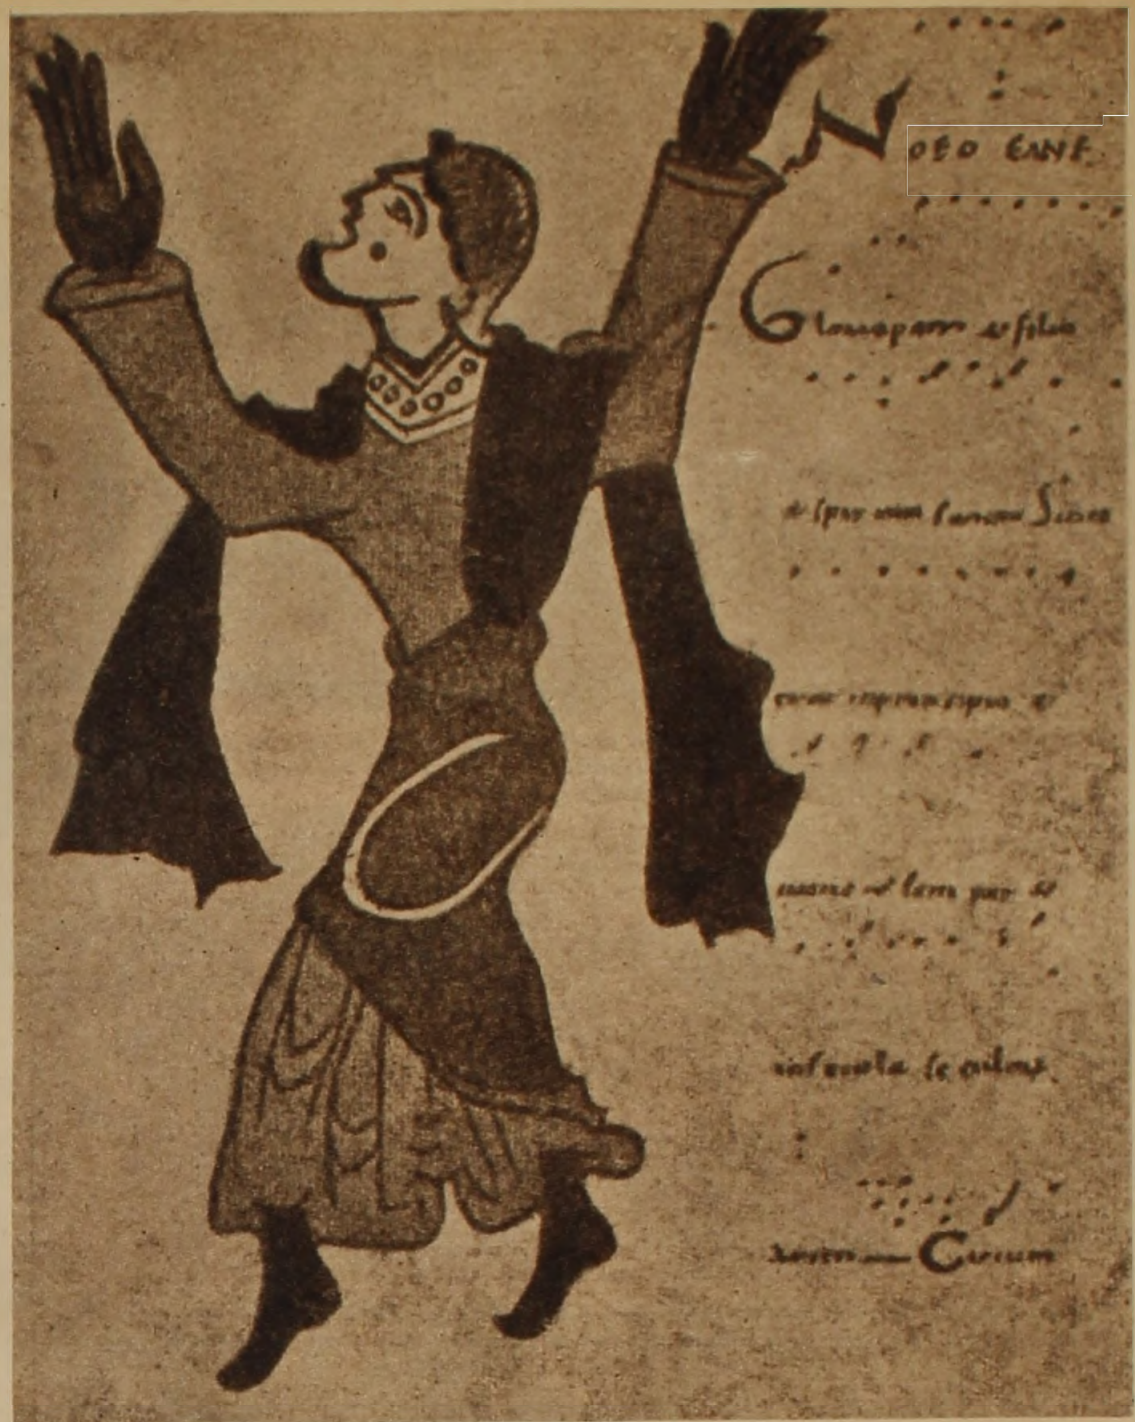 NOEO EANE
Gloria patri & filio
& spiritui sancto Sicut
erat in principio &
nunc & semper &
in secula seculorum
amen Circum